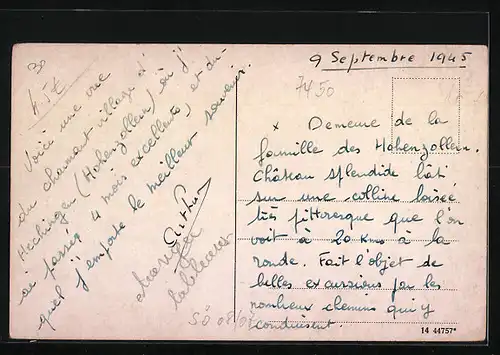 30
9 Septembre 1945
7450
Voici une vue
du charmant village d'
Hechingen (Hohenzollern) où j'
ai passé 4 mois excellents, et du-
quel j'emporte le meilleur souvenir.
x Demeure de la
famille des Hohenzollern.
Château splendide bâti
sur une colline boisée
très pittoresque que l'on
voit à 20 Kms à la
ronde. Fait l'objet de
belles excursions par les
nombreux chemins qui y
conduisent.
14 44757*